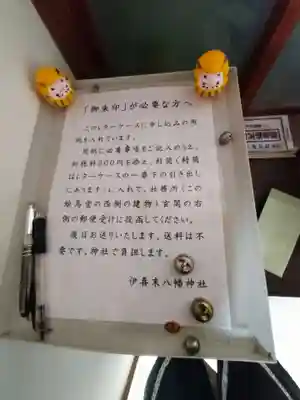 「御朱印」が必要な方へ
このレターケースに申し込みの用
紙を入れています。
用紙に必要事項をご記入のうえ、
初穂料300円を添え、封筒(封筒
はレターケースの一番下の引き出し
にあります)に入れて、社務所(この
絵馬堂の西側の建物)玄関の右
側の郵便受けに投函してください。
後日お送りいたします。送料は不
要です。神社で負担します。
伊喜末八幡神社